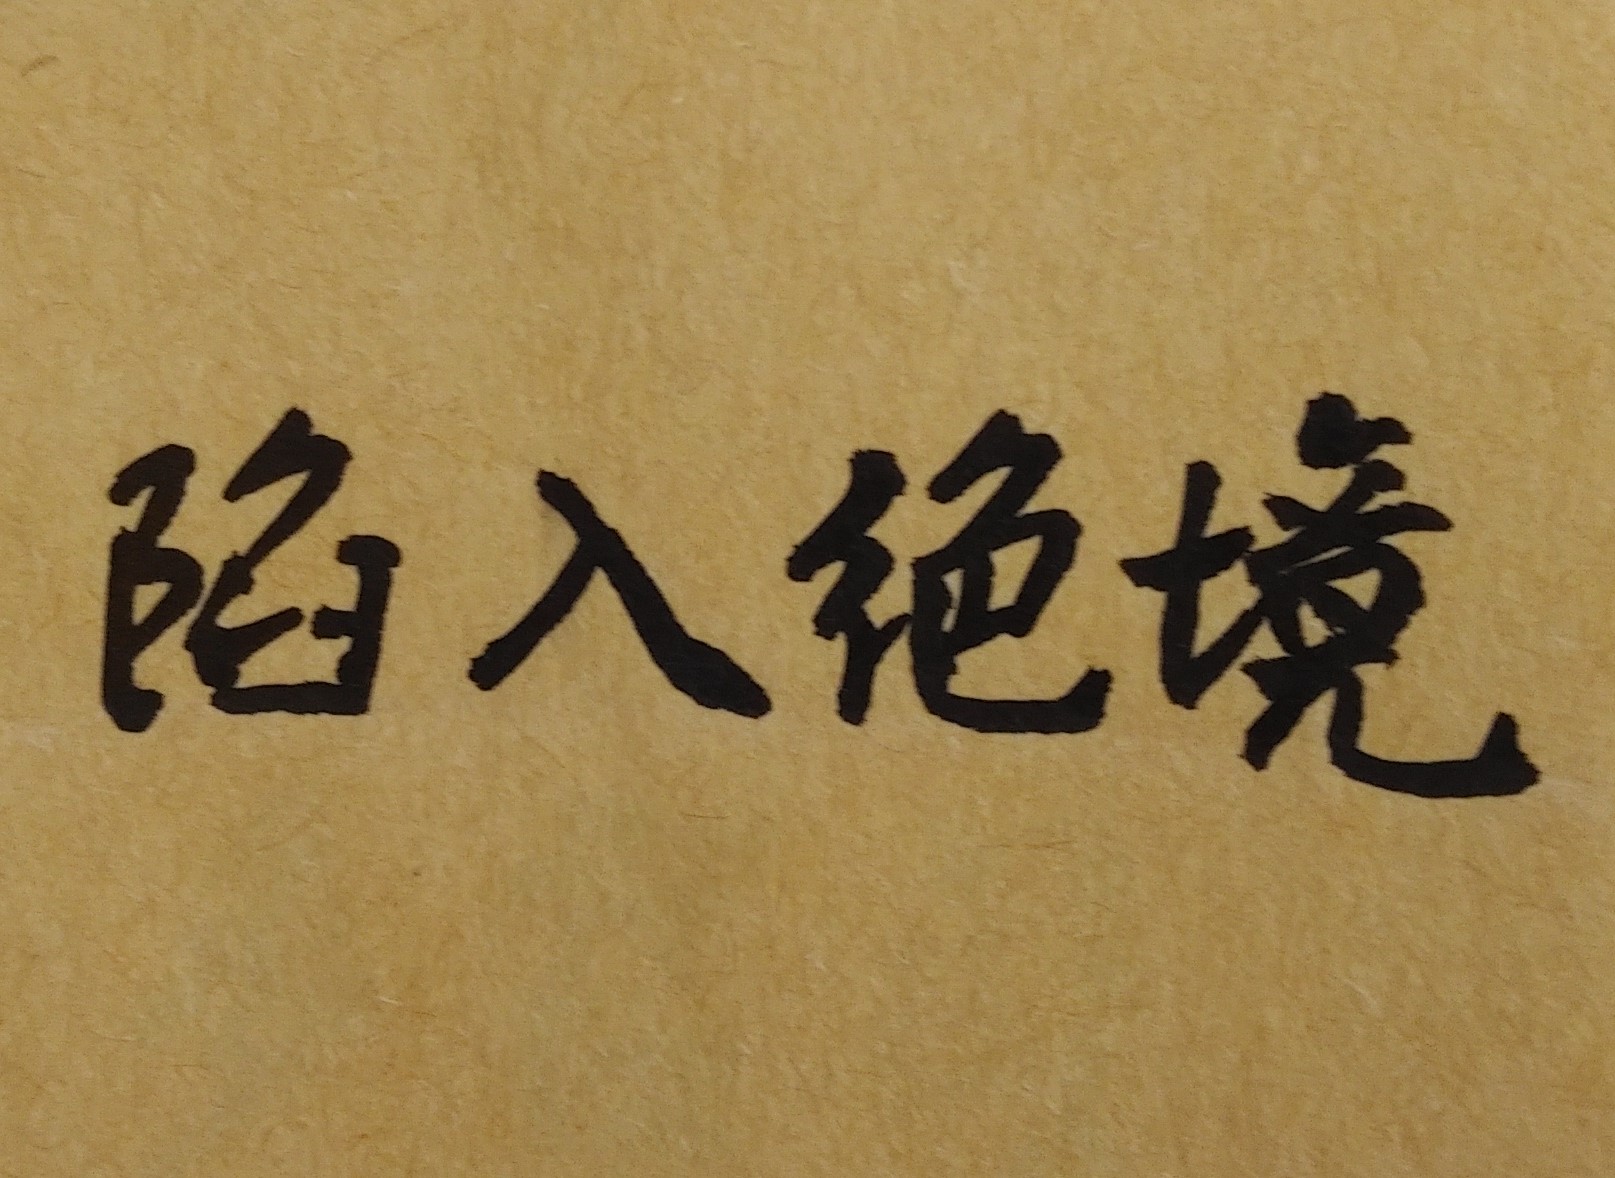 陷入绝境